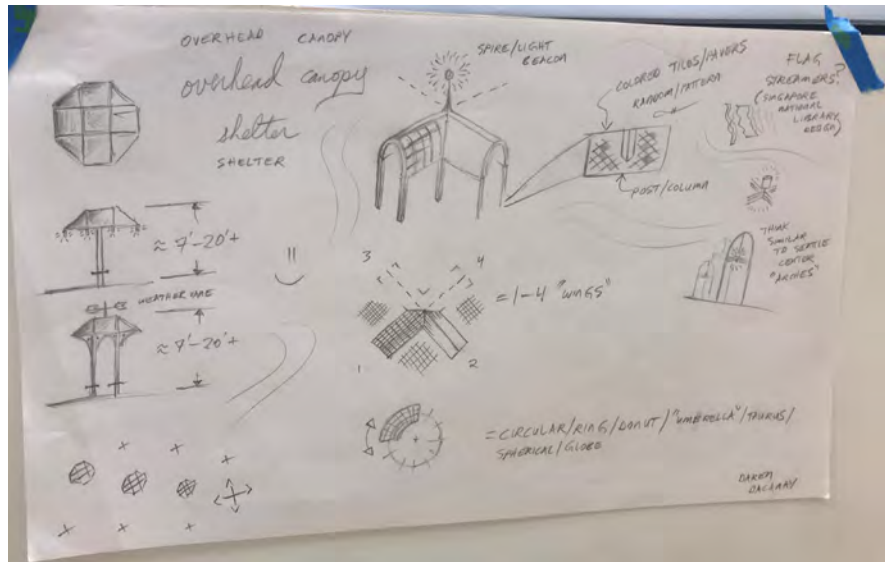 OVERHEAD CANOPY
overhead canopy
shelter
SHELTER
SPIRE/LIGHT
BEACON
COLORED TILES/PAVERS
RANDOM/PATTERN
POST/COLUMN
FLAG
STREAMERS?
(SINGAPORE
NATIONAL
LIBRARY
DESIGN)
THINK
SIMILAR
TO SEATTLE
CENTER
"ARCHES"
≈ 7'-20'+
WEATHER VANE
≈ 7'-20'+
3
4
= 1-4 "WINGS"
1
2
= CIRCULAR/RING/DONUT/"UMBRELLA"/TAURUS/
SPHERICAL/GLOBE